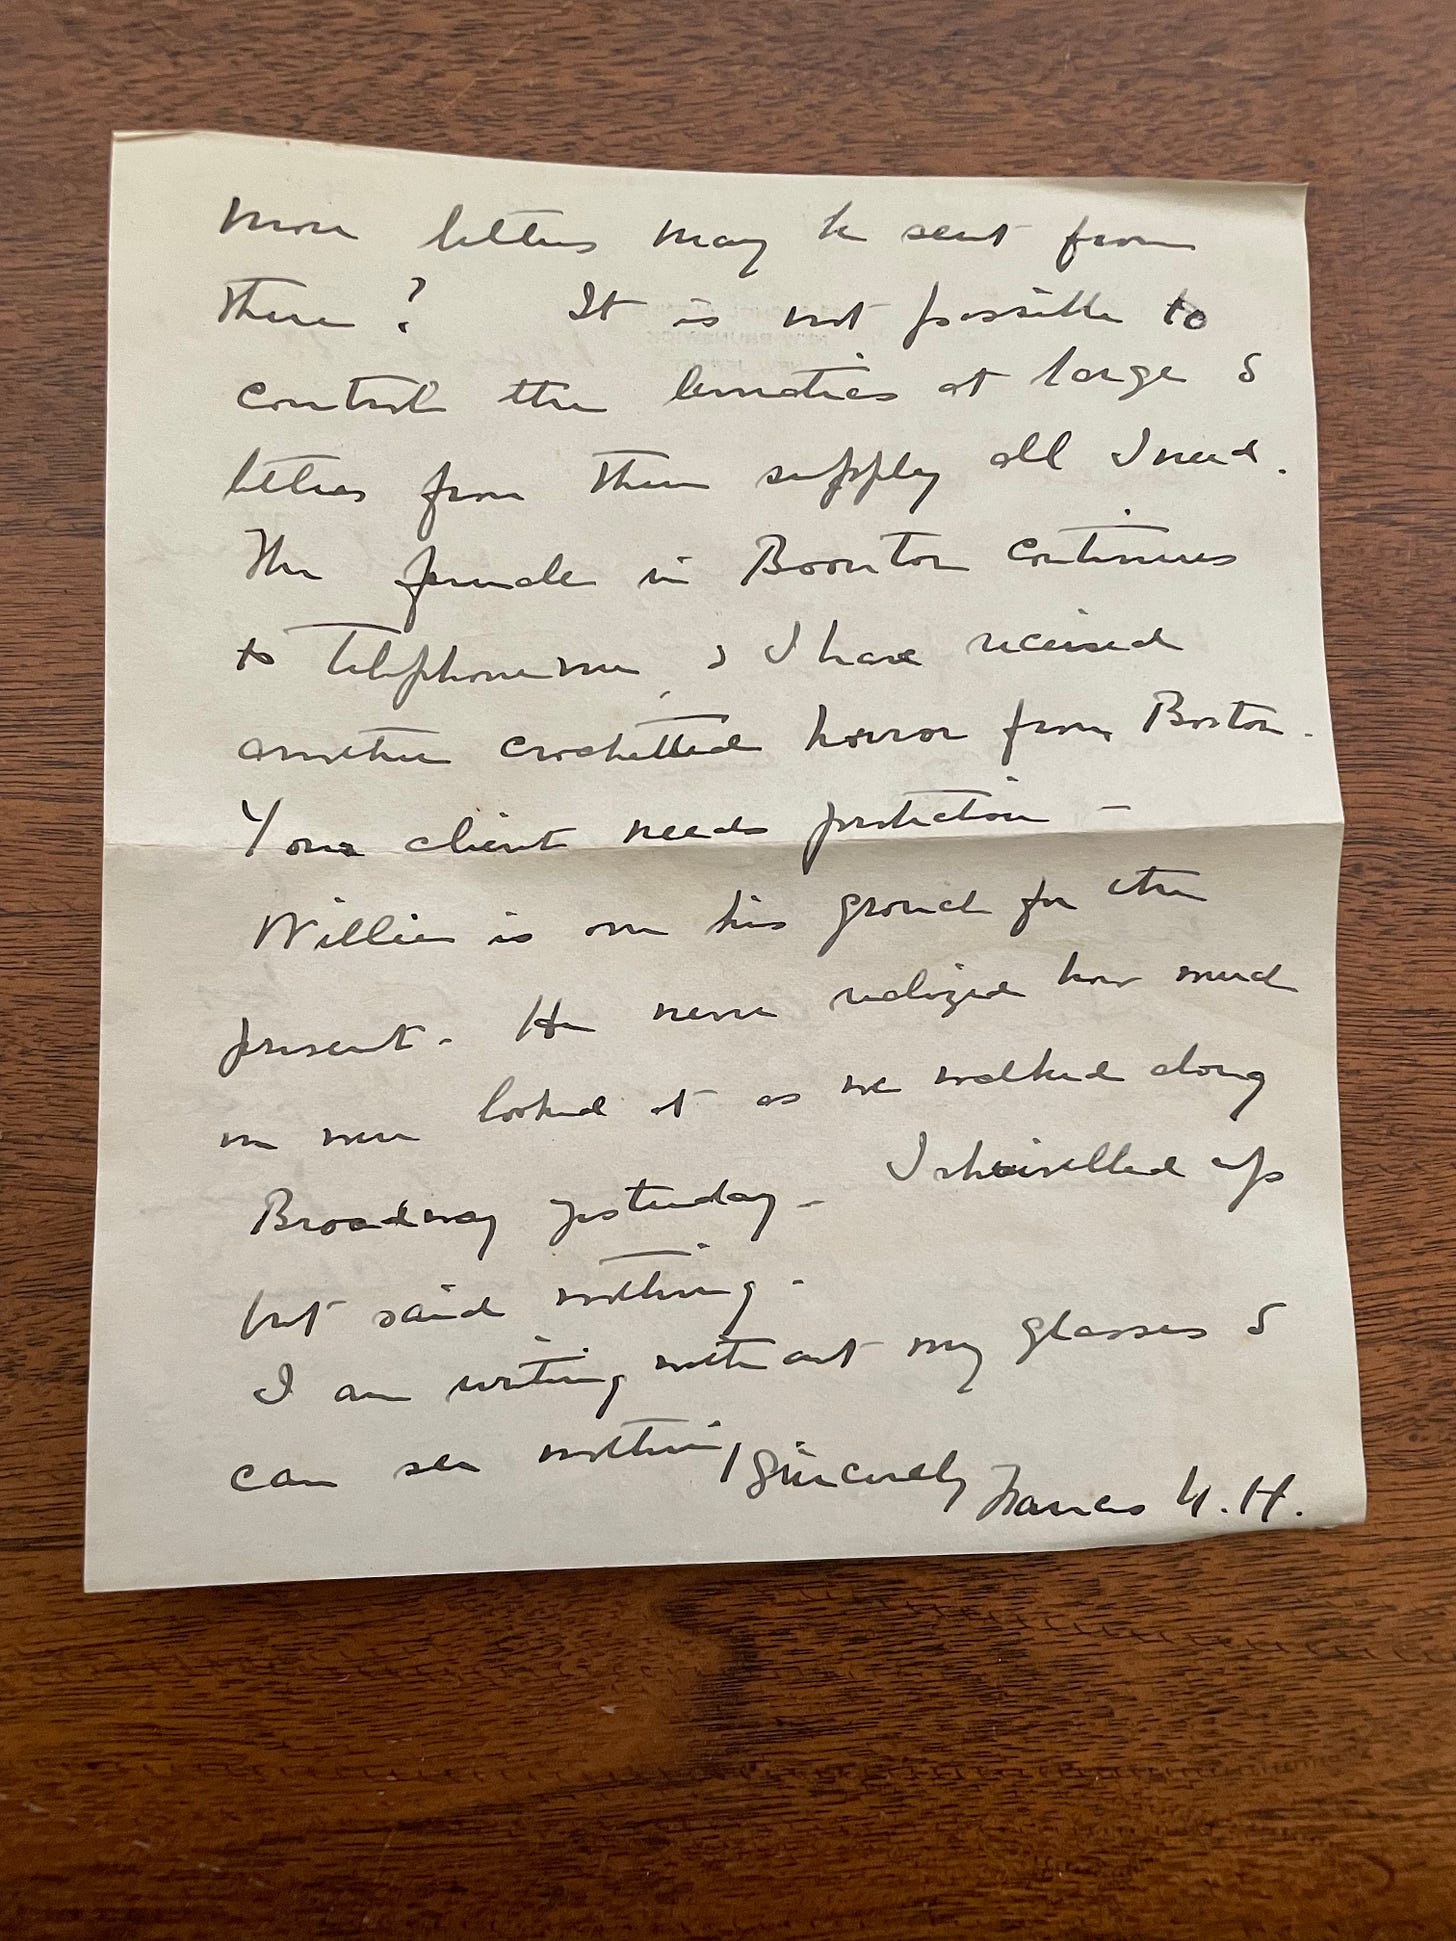 more letters may be sent from
there? It is not possible to
control the lunatics at large &
letters from them supply all I need.
The female in Boonton continues
to telephone me, & I have received
another crochetted horror from Boston.
Your client needs protection -
Willie is on his grouch for the
present. He never realized how much
we were looked at as we walked along
Broadway yesterday - I shrivelled up
but said nothing.
I am writing without my glasses &
can see nothing
Sincerely Frances N. H.